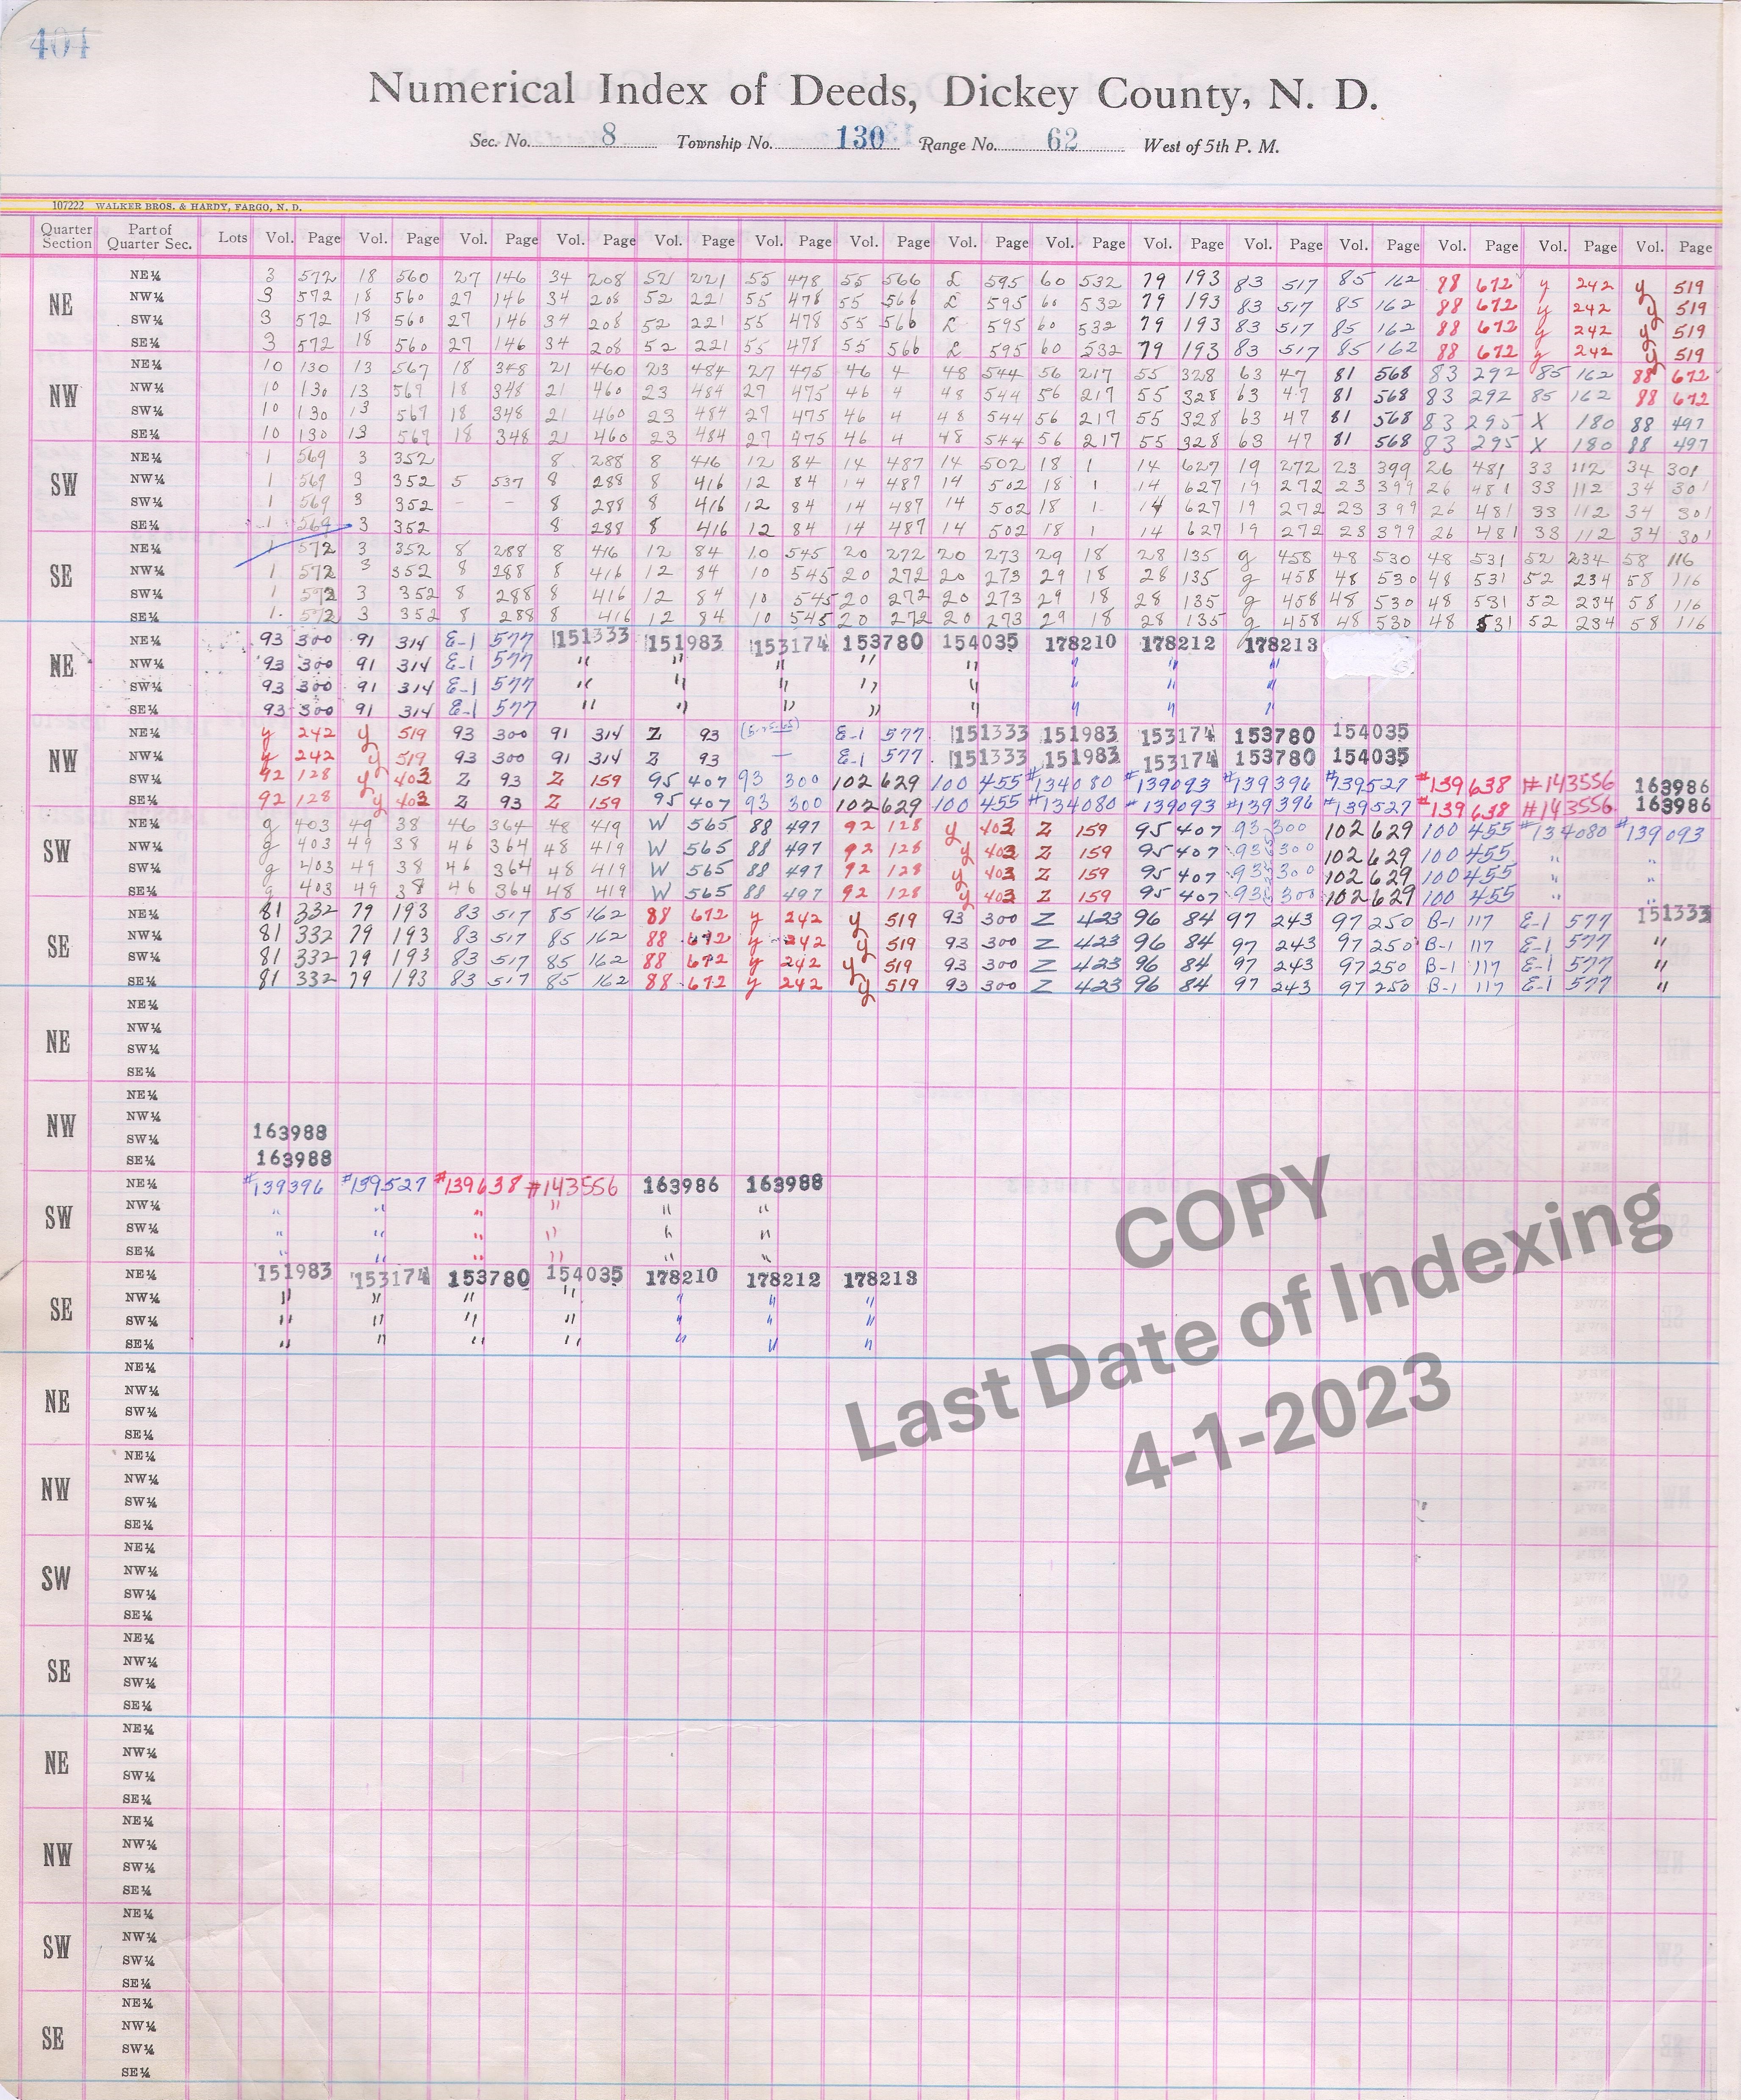 404
Numerical Index of Deeds, Dickey County, N. D.
Sec. No. 8 Township No. 130 Range No. 62 West of 5th P. M.
107222 WALKER BROS. & HARDY, FARGO, N. D.
Quarter Section Part of Quarter Sec. Lots Vol. Page Vol. Page Vol. Page Vol. Page Vol. Page Vol. Page Vol. Page Vol. Page Vol. Page Vol. Page Vol. Page Vol. Page Vol. Page Vol. Page Vol. Page
NE
NE¼ 3 572 18 560 27 146 34 208 52 221 55 478 55 566 L 595 60 532 79 193 83 517 85 162 88 672 y 242 y 519
NW¼ 3 572 18 560 27 146 34 208 52 221 55 478 55 566 L 595 60 532 79 193 83 517 85 162 88 672 y 242 y 519
SW¼ 3 572 18 560 27 146 34 208 52 221 55 478 55 566 L 595 60 532 79 193 83 517 85 162 88 672 y 242 y 519
SE¼ 3 572 18 560 27 146 34 208 52 221 55 478 55 566 L 595 60 532 79 193 83 517 85 162 88 672 y 242 y 519
NW
NE¼ 10 130 13 567 18 348 21 460 23 484 27 475 46 4 48 544 56 217 55 328 63 47 81 568 83 292 85 162 88 672
NW¼ 10 130 13 567 18 348 21 460 23 484 27 475 46 4 48 544 56 217 55 328 63 47 81 568 83 292 85 162 88 672
SW¼ 10 130 13 567 18 348 21 460 23 484 27 475 46 4 48 544 56 217 55 328 63 47 81 568 83 295 X 180 88 497
SE¼ 10 130 13 567 18 348 21 460 23 484 27 475 46 4 48 544 56 217 55 328 63 47 81 568 83 295 X 180 88 497
SW
NE¼ 1 569 3 352 8 288 8 416 12 84 14 487 14 502 18 1 14 627 19 272 23 399 26 481 33 112 34 301
NW¼ 1 569 3 352 5 537 8 288 8 416 12 84 14 487 14 502 18 1 14 627 19 272 23 399 26 481 33 112 34 301
SW¼ 1 569 3 352 - - 8 288 8 416 12 84 14 487 14 502 18 1 14 627 19 272 23 399 26 481 33 112 34 301
SE¼ 1 569 3 352 8 288 8 416 12 84 14 487 14 502 18 1 14 627 19 272 23 399 26 481 33 112 34 301
SE
NE¼ 1 572 3 352 8 288 8 416 12 84 10 545 20 272 20 273 29 18 28 135 g 458 48 530 48 531 52 234 58 116
NW¼ 1 572 3 352 8 288 8 416 12 84 10 545 20 272 20 273 29 18 28 135 g 458 48 530 48 531 52 234 58 116
SW¼ 1 572 3 352 8 288 8 416 12 84 10 545 20 272 20 273 29 18 28 135 g 458 48 530 48 531 52 234 58 116
SE¼ 1 572 3 352 8 288 8 416 12 84 10 545 20 272 20 273 29 18 28 135 g 458 48 530 48 531 52 234 58 116
NE
NE¼ 93 300 91 314 E-1 577 151333 151983 153174 153780 154035 178210 178212 178213
NW¼ 93 300 91 314 E-1 577 " " " " " " " "
SW¼ 93 300 91 314 E-1 577 " " " " " " " "
SE¼ 93 300 91 314 E-1 577 " " " " " " " "
NW
NE¼ y 242 y 519 93 300 91 314 Z 93 (5-25-65) E-1 577 151333 151983 153174 153780 154035
NW¼ y 242 y 519 93 300 91 314 Z 93 — E-1 577 151333 151983 153174 153780 154035
SW¼ 92 128 y 403 Z 93 Z 159 95 407 93 300 102 629 100 455 #134080 #139093 #139396 #139527 #139638 #143556 163986
SE¼ 92 128 y 403 Z 93 Z 159 95 407 93 300 102 629 100 455 #134080 #139093 #139396 #139527 #139638 #143556 163986
SW
NE¼ g 403 49 38 46 364 48 419 W 565 88 497 92 128 y 403 Z 159 95 407 93 300 102 629 100 455 #134080 #139093
NW¼ g 403 49 38 46 364 48 419 W 565 88 497 92 128 y 403 Z 159 95 407 93 300 102 629 100 455 " "
SW¼ g 403 49 38 46 364 48 419 W 565 88 497 92 128 y 403 Z 159 95 407 93 300 102 629 100 455 " "
SE¼ g 403 49 38 46 364 48 419 W 565 88 497 92 128 y 403 Z 159 95 407 93 300 102 629 100 455 " "
SE
NE¼ 81 332 79 193 83 517 85 162 88 672 y 242 y 519 93 300 Z 423 96 84 97 243 97 250 B-1 117 E-1 577 151333
NW¼ 81 332 79 193 83 517 85 162 88 672 y 242 y 519 93 300 Z 423 96 84 97 243 97 250 B-1 117 E-1 577 "
SW¼ 81 332 79 193 83 517 85 162 88 672 y 242 y 519 93 300 Z 423 96 84 97 243 97 250 B-1 117 E-1 577 "
SE¼ 81 332 79 193 83 517 85 162 88 672 y 242 y 519 93 300 Z 423 96 84 97 243 97 250 B-1 117 E-1 577 "
NE
NE¼
NW¼
SW¼
SE¼
NW
NE¼
NW¼
SW¼ 163988
SE¼ 163988
SW
NE¼ #139396 #139527 #139638 #143556 163986 163988
NW¼ " " " " " "
SW¼ " " " " " "
SE¼ " " " " " "
SE
NE¼ 151983 153174 153780 154035 178210 178212 178213
NW¼ " " " " " " "
SW¼ " " " " " " "
SE¼ " " " " " " "
COPY
Last Date of Indexing
4-1-2023
NE
NE¼
NW¼
SW¼
SE¼
NW
NE¼
NW¼
SW¼
SE¼
SW
NE¼
NW¼
SW¼
SE¼
SE
NE¼
NW¼
SW¼
SE¼
NE
NE¼
NW¼
SW¼
SE¼
NW
NE¼
NW¼
SW¼
SE¼
SW
NE¼
NW¼
SW¼
SE¼
SE
NE¼
NW¼
SW¼
SE¼